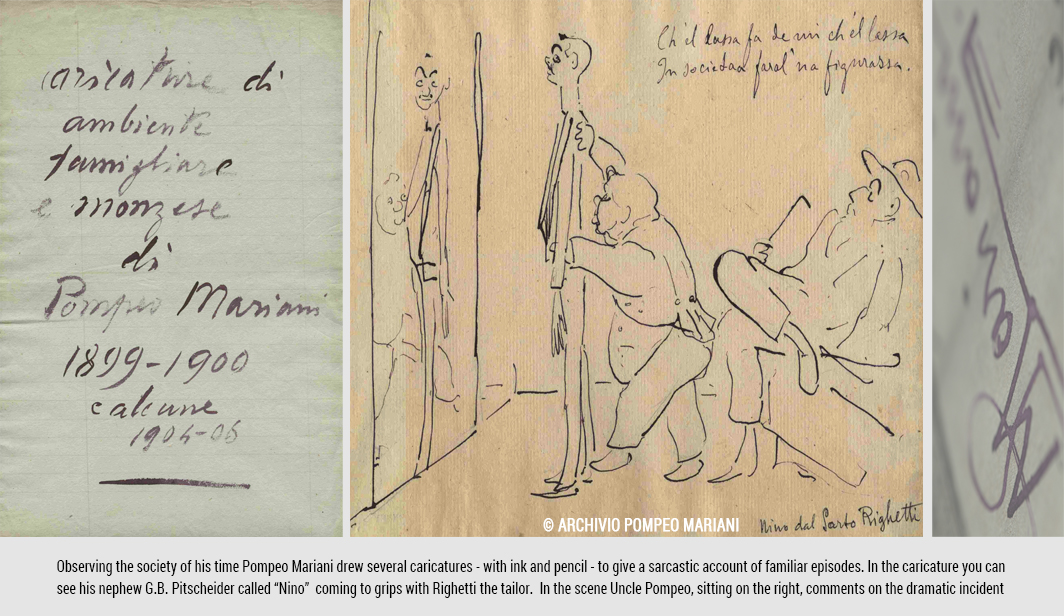 caricature di
ambiente
famigliare
e monzese
di
Pompeo Mariani
1899-1900
e alcune
1904-06
Ch'el lassa fa de mi ch'el lassa
In societaa faral' na figurassa.
© ARCHIVIO POMPEO MARIANI
Nino dal Sarto Righetti
Observing the society of his time Pompeo Mariani drew several caricatures - with ink and pencil - to give a sarcastic account of familiar episodes. In the caricature you can
see his nephew G.B. Pitscheider called “Nino” coming to grips with Righetti the tailor. In the scene Uncle Pompeo, sitting on the right, comments on the dramatic incident